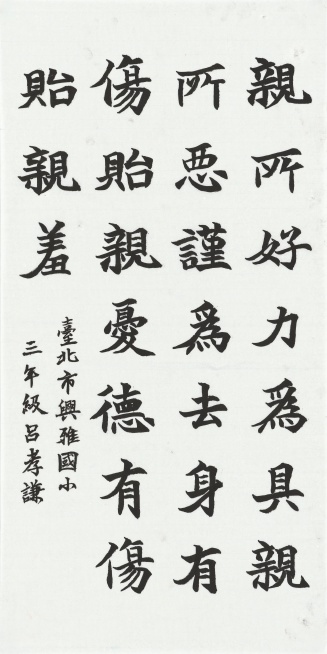 親所好力為具親
所惡謹為去身有
傷貽親憂德有傷
貽親羞
臺北市興雅國小
三年級呂孝謙